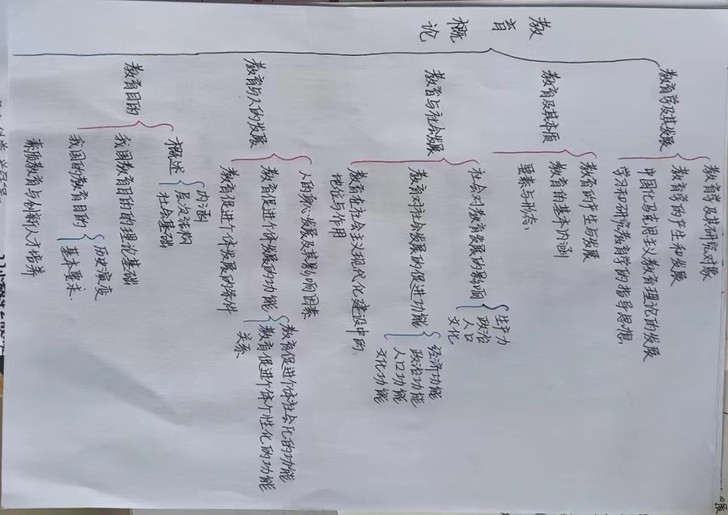 教育概论
教育学及其发展
教育学及其研究对象
教育学的产生和发展
中国化马克思主义教育理论的发展
学习和研究教育学的指导思想
教育及其本质
教育的产生与发展
教育的基本内涵
要素与形态
教育与社会发展
社会对教育发展的影响
生产力
政治
人口
文化
教育对社会发展的促进功能
经济功能
政治功能
人口功能
文化功能
教育在社会主义现代化建设中的
地位与作用
教育与人的发展
人的身心发展及其影响因素
教育促进个体发展的功能
教育促进个体社会化的功能
教育促进个体个性化的功能
关系
教育促进个体发展的条件
教育目的
概述
内涵
层次结构
社会基础
我国教育目的的理论基础
我国的教育目的
历史演变
基本要求
素质教育与创新人才培养